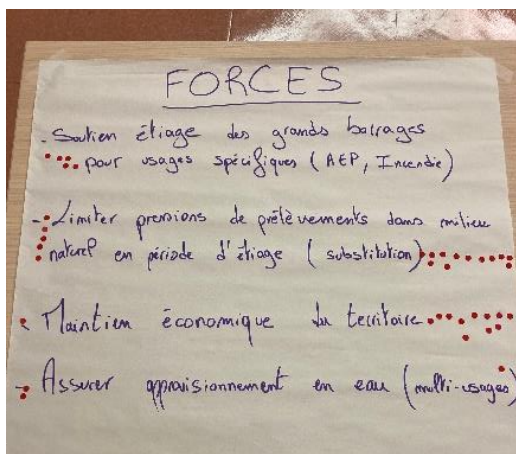 FORCES
- Soutien étiage des grands barrages
pour usages spécifiques (AEP, Incendie)
- Limiter pressions de prélèvements dans milieu
naturel en période d'étiage (substitution)
Maintien économique du territoire
- Assurer approvisionnement en eau (multi-usages)